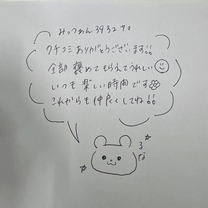 みっつめん3932サマ
クチコミありがとうございます!!
全部 褒めてもらえてうれしい
いつも楽しい時間です
これからも仲良くしてね!!
るな